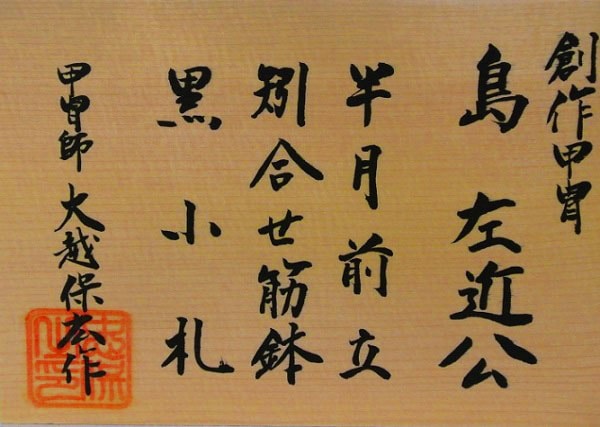 創作甲冑
島左近公
半月前立
矧合せ筋鉢
黒小札
甲冑師 大越保広作